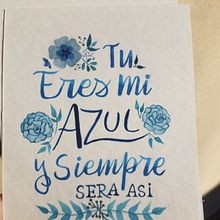 Tu
Eres mi
AZUL
y Siempre
SERA ASi